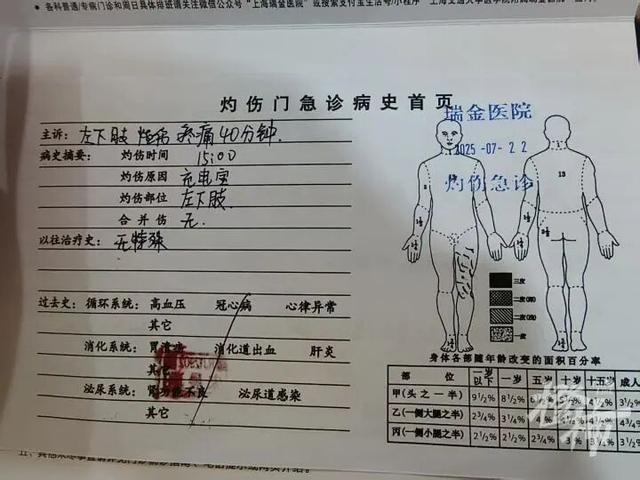 各科普通/专病门诊和周日具体排班请关注微信公众号“上海瑞金医院”或搜索支付宝生活号/小程序“上海交通大学医学院附属瑞金医院
灼伤门急诊病史首页
瑞金医院
2025-07-22
灼伤急诊
主诉: 左下肢 疼痛40分钟.
病史摘要: 灼伤时间 15:00
灼伤原因 充电宝
灼伤部位 左下肢
合并伤 无
以往治疗史: 无特殊
13
过去史: 循环系统: 高血压 冠心病 心律异常
其它
消化系统: 胃溃疡 消化道出血 肝炎
其它
泌尿系统: 肾功能不良 泌尿道感染
其它
三度
二度(深)
二度(浅)
一度
身体各部随年龄改变的面积百分率
部位 一岁以下 一岁 五岁 十岁 十五岁 成人
甲(头之一半) 9½% 8½% 4½% 3½%
乙(一侧大腿之半) 2¾% 3¼% 4% 4¾%
丙(一侧小腿之半) 2½% 2½% 2¾% 3% 3½%